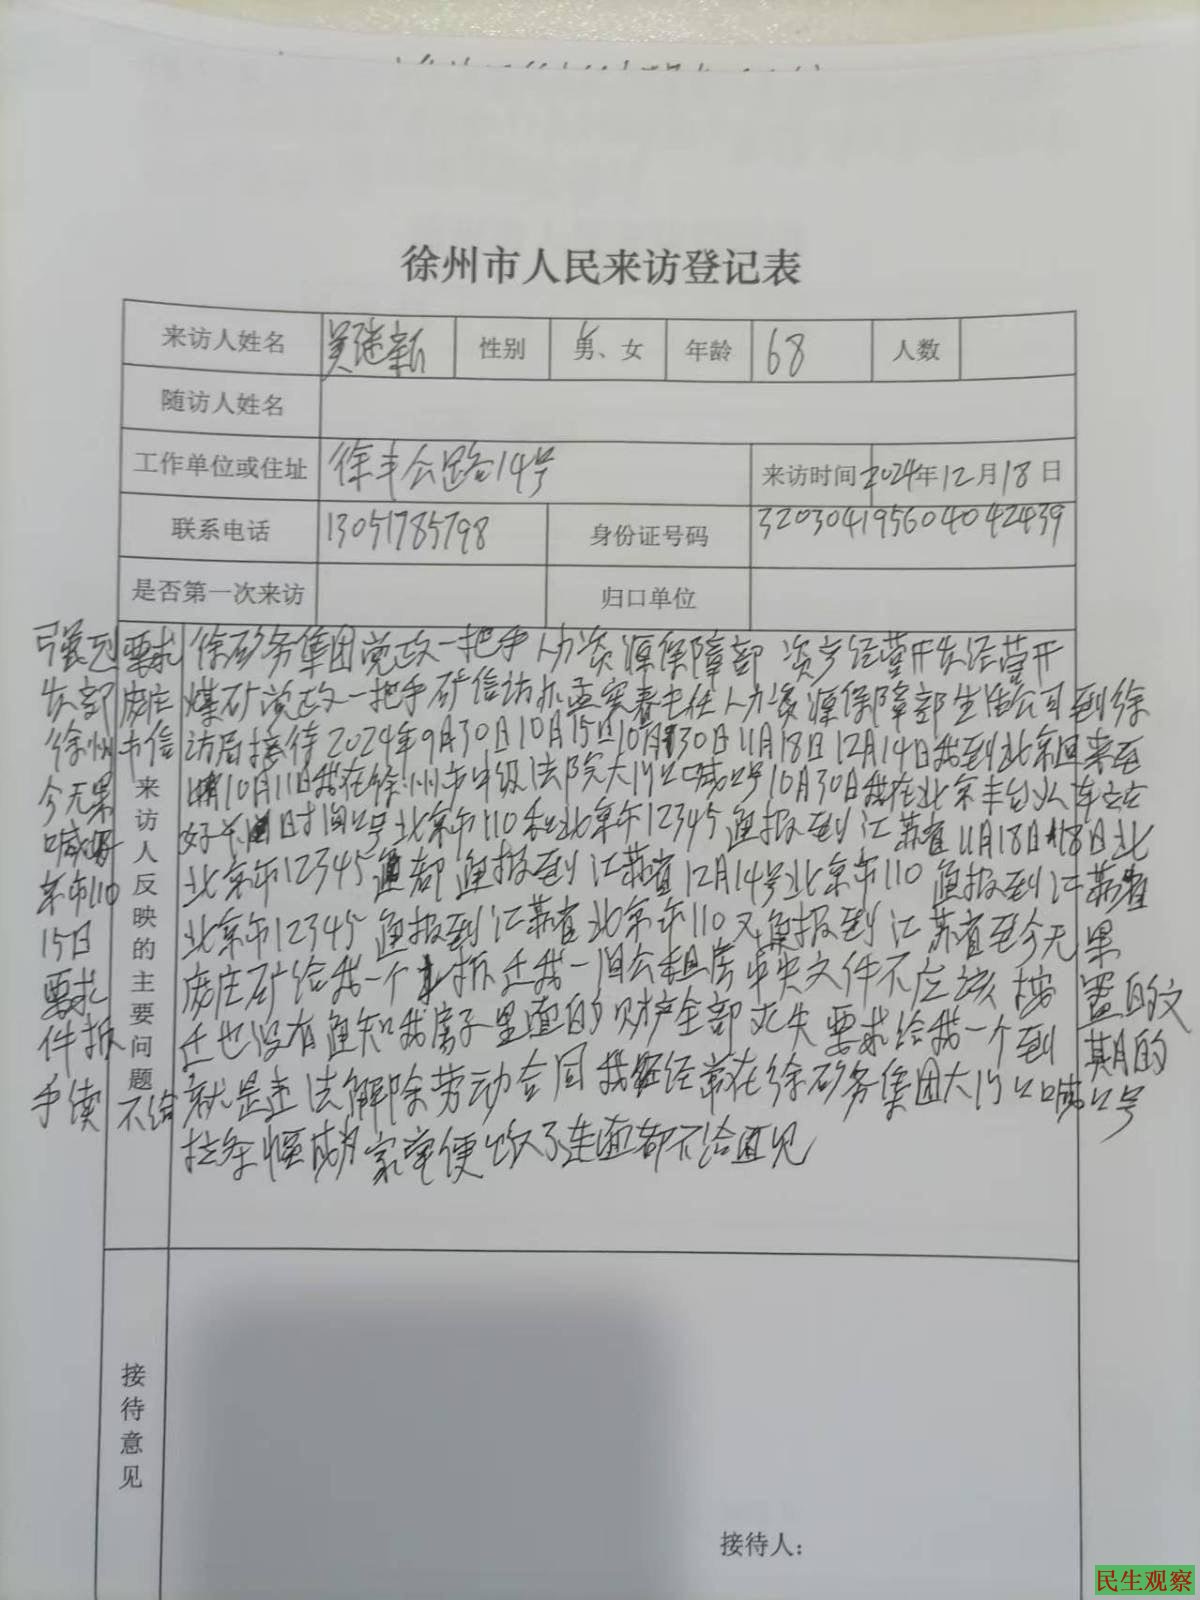 徐州市人民来访登记表
来访人姓名 吴继新 性别 男、女 年龄 68 人数
随访人姓名
工作单位或住址 徐丰公路14号 来访时间 2024年12月18日
联系电话 13051785798 身份证号码 320304195604042439
是否第一次来访 归口单位
来访人反映的主要问题
强烈要求徐矿务集团党政一把手人力资源保障部 资产经营开发经营开
发部庞庄煤矿党政一把手矿信访办孟宪春主任人力资源保障部生活公司到徐
徐州市信访局接待2024年9月30日10月15日10月30日11月18日12月14日我到北京回来至
今无果 10月11日我在徐州市中级法院大门口喊口号10月30日我在北京丰台火车站
喊 好长时间口号北京市110和北京市12345通报到江苏省11月18日 北
京市110北京市12345通 通报到江苏省12月14号北京市110通报到江苏省
15日北京市12345通报到江苏省北京市110又通报到江苏省至今无果
要求庞庄矿给我一个 拆迁我一间公租房中央文件不应该按置的文
件拆迁也没有通知我房子里面的财产全部丢失要求给我一个到期的
手续不给就是违法解除劳动合同我经常在徐矿务集团大门口喊口号
拉条幅成为家常便饭了连面都不给面见
接待意见
接待人：
民生观察